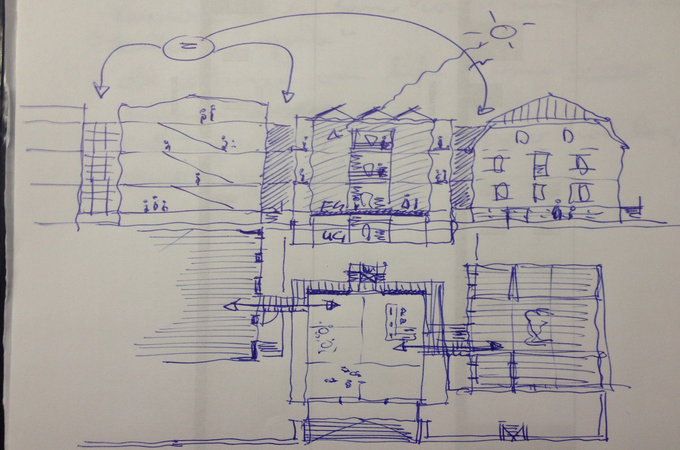 EG
UG